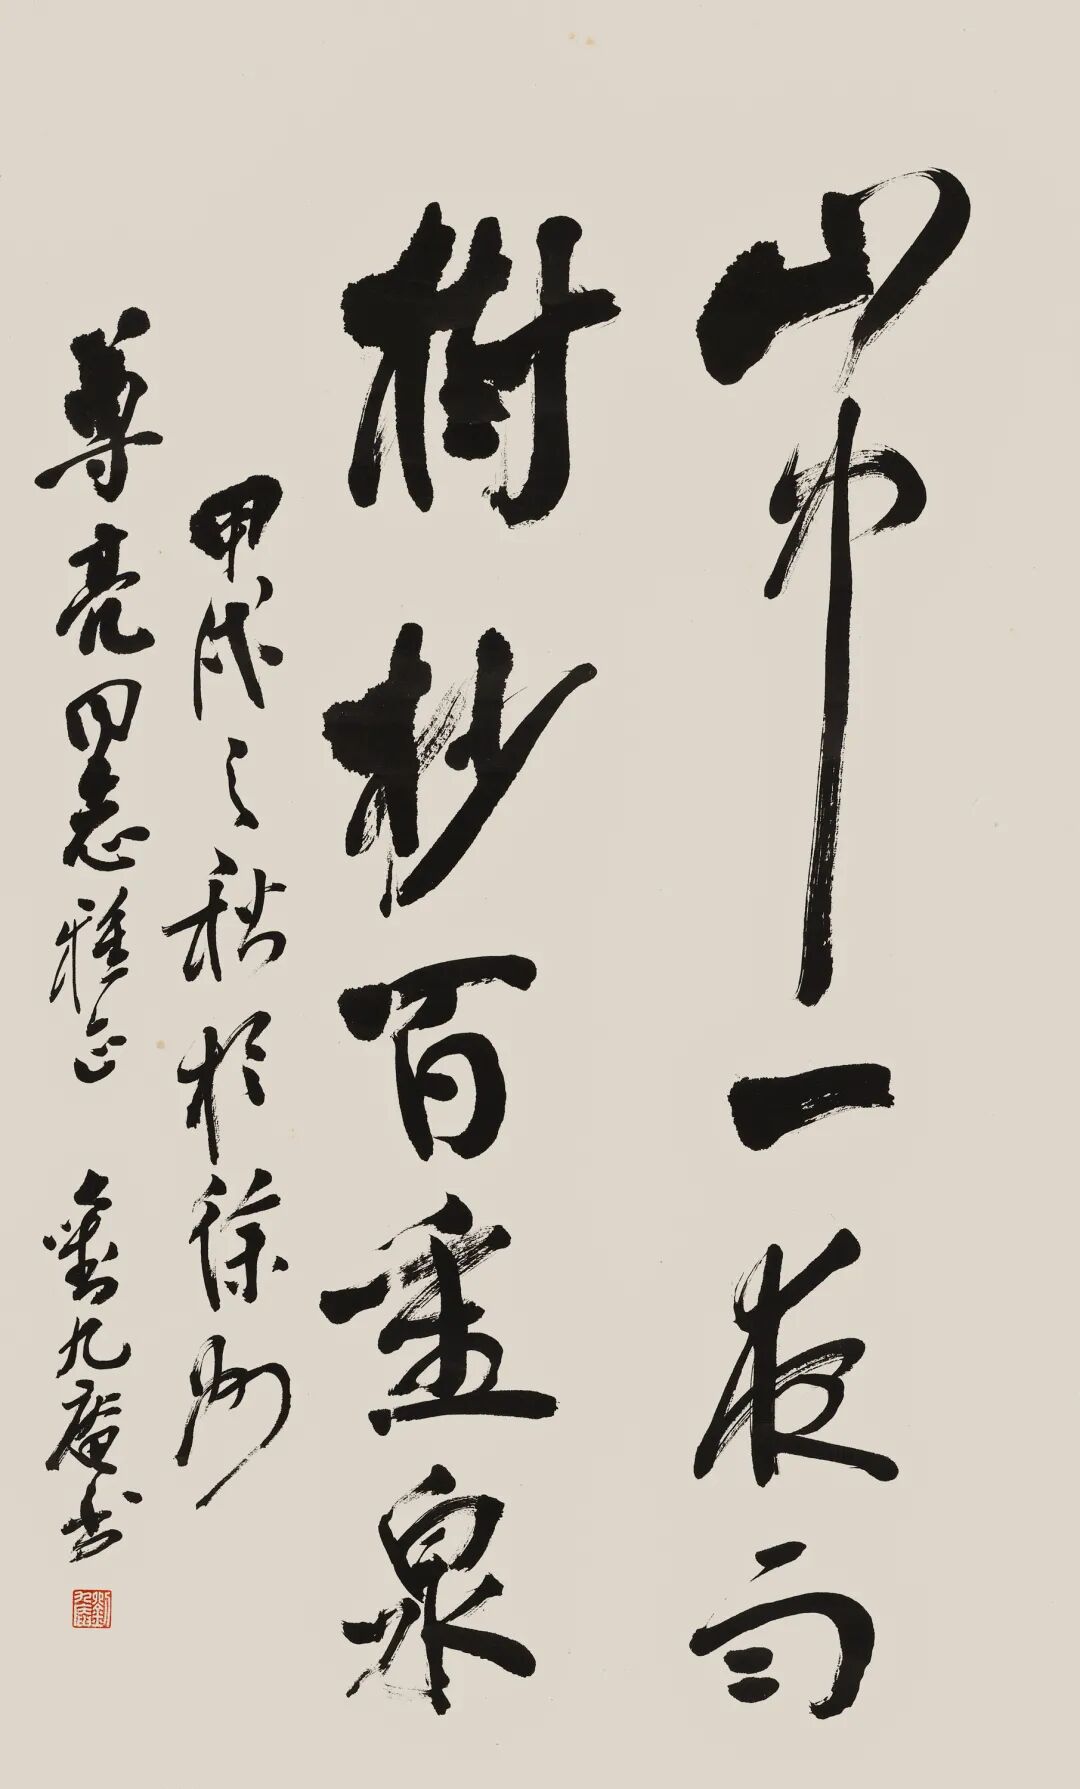 山中一夜雨
樹杪百重泉
甲戌之秋於徐州
尊亮同志雅正 劉九庵书
劉九庵